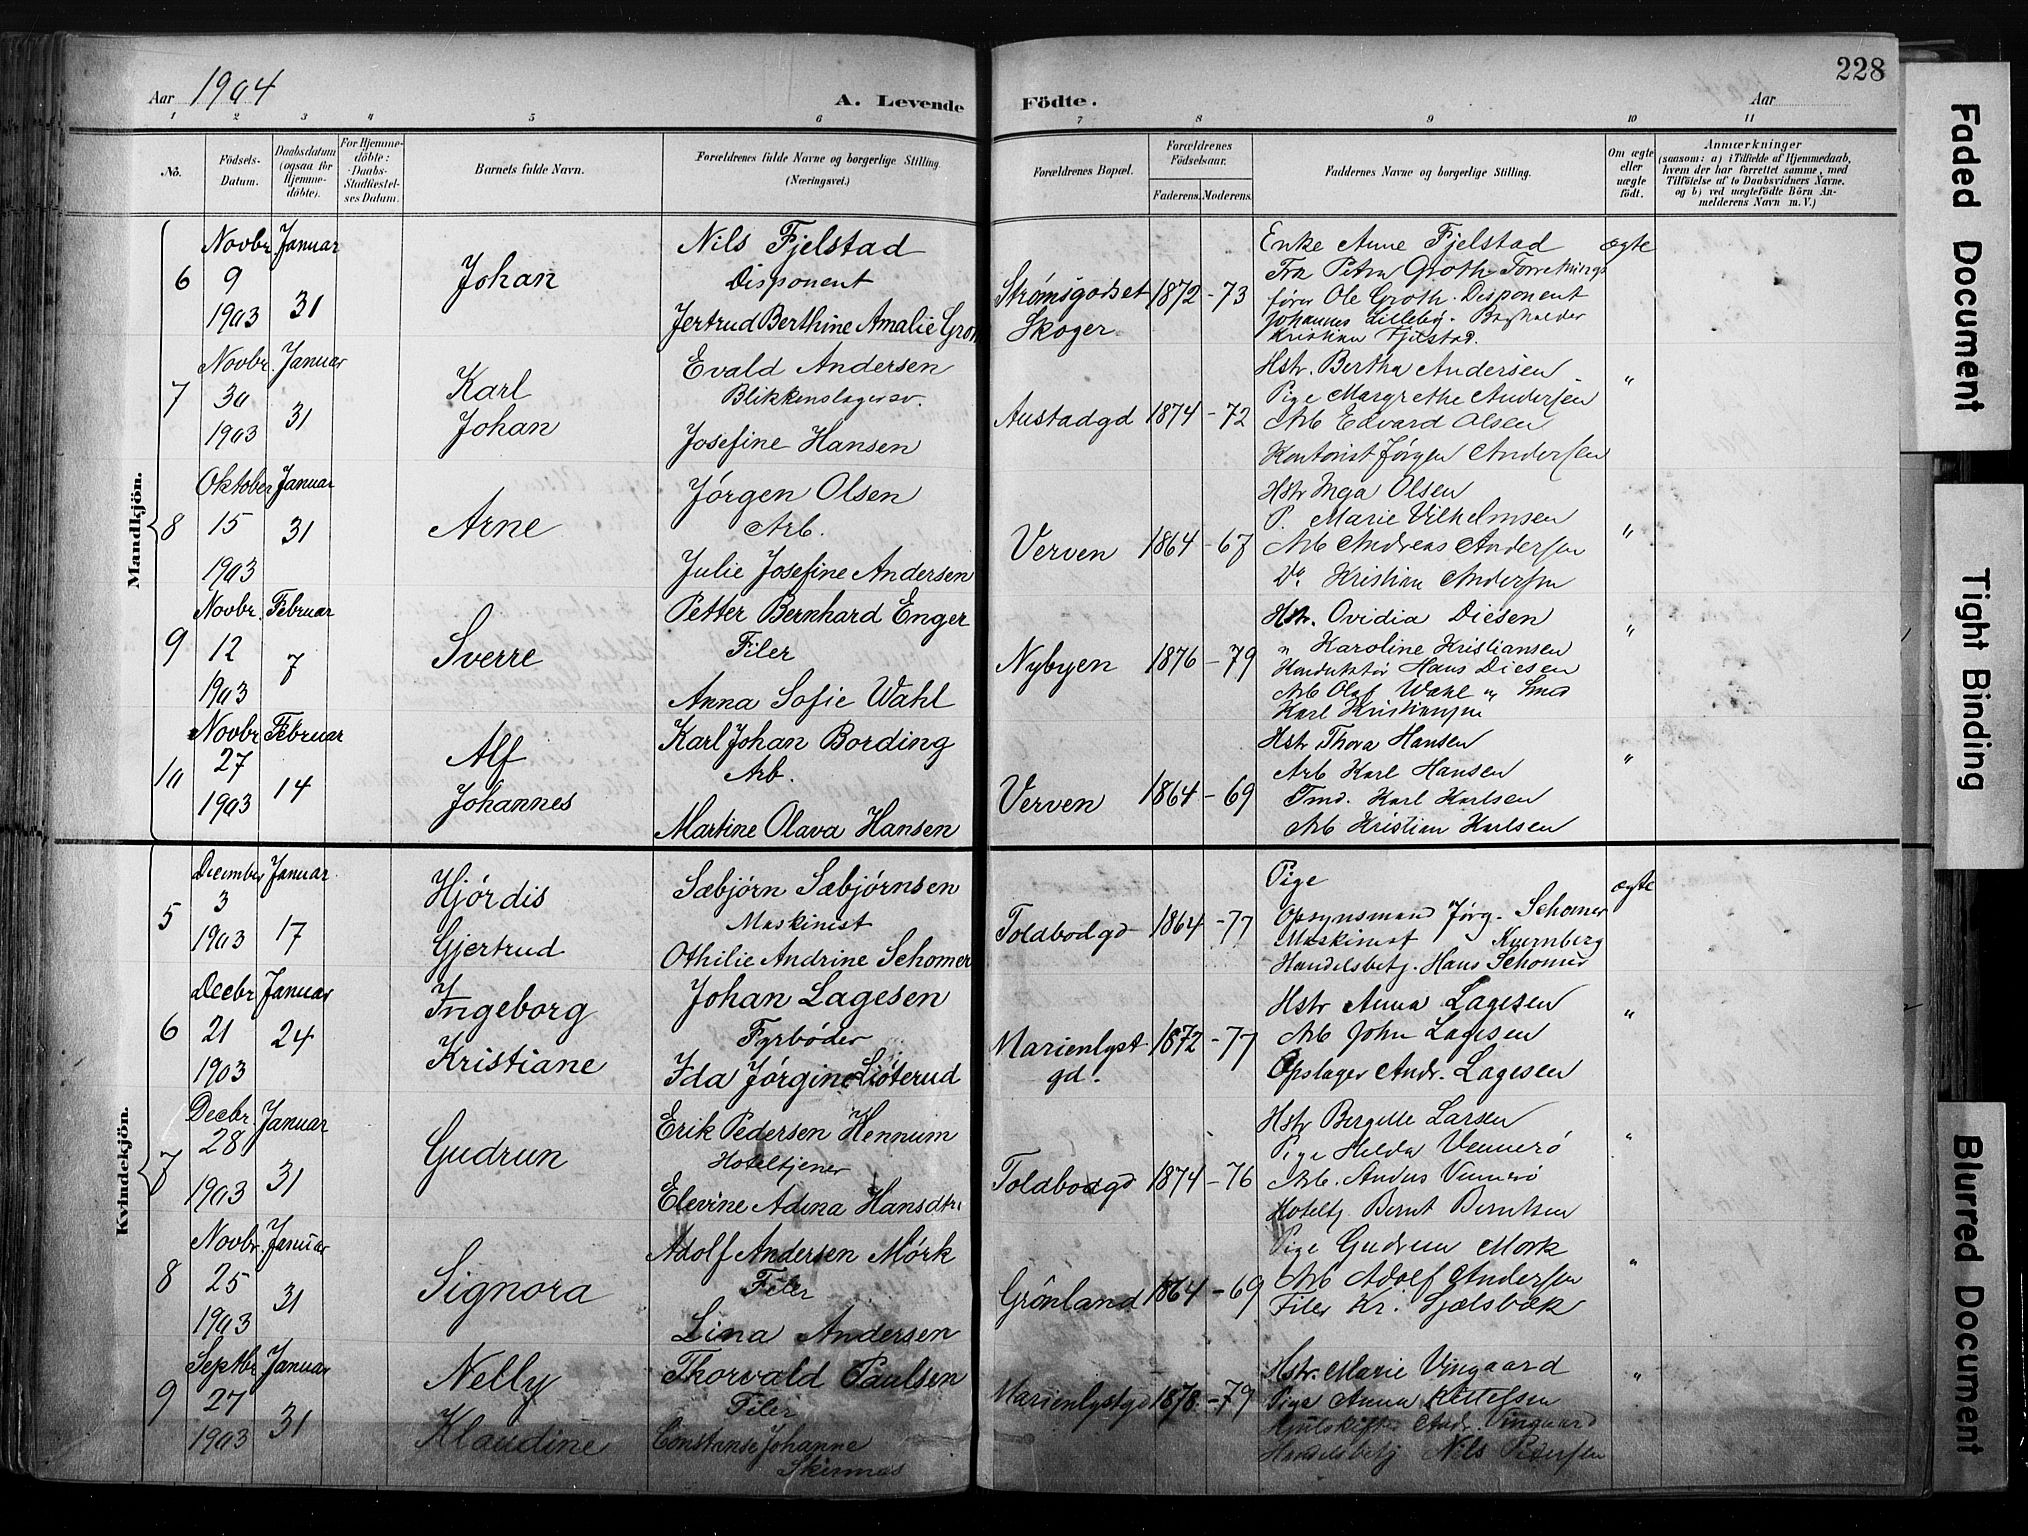 228
Aar 1904
A. Levende Födte.
Aar
1 2 3 4 5 6 7 8 9 10 11
No.
Födsels-Datum.
Daabsdatum (ogsaa for Hjemme-döbte).
For Hjemme-döbte: Daabs-Stadfæstel-ses Datum.
Barnets fulde Navn.
Forældrenes fulde Navne og borgerlige Stilling. (Næringsvei.)
Forældrenes Bopæl.
Forældrenes Födselsaar.
Faderens. Moderens.
Faddernes Navne og borgerlige Stilling.
Om ægte eller uægte födt.
Anmærkninger
(saasom: a) i Tilfælde af Hjemmedaab,
hvem der har forrettet samme, med
Tilföielse af to Daabsvidners Navne.
og b) ved uægtefödte Börn An-
melderens Navn m. V.)
Mandkjön.
6
Novbr 9 1903
Januar 31
Johan
Nils Fjelstad
Disponent
Jertrud Berthine Amalie Groth
Strømsgodset
Skoger
1872 - 73
Enke Anne Fjelstad
Fra Petra Groth Forretnings
fører Ole Groth. Disponent
Johannes Lilleby. Bogholder
Kristian Fjelstad.
ægte
7
Novbr. 30 1903
Januar 31
Karl
Johan
Evald Andersen
Blikkenslagersv.
Josefine Hansen
Austadgd
1874 - 72
Hstr. Bertha Andersen
Pige Margrethe Andersen
Arb Edvard Olsen
Kontorist Jørgen Andersen
"
8
Oktober 15 1903
Januar 31
Arne
Jørgen Olsen
Arb.
Julie Josefine Andersen
Verven
1864 - 67
Hstr Inga Olsen
P. Marie Vilhelmsen
Arb Andreas Andersen
Do. Kristian Andersen
"
9
Novbr. 12 1903
Februar 7
Sverre
Petter Bernhard Enger
Filer
Anna Sofie Wahl
Nybyen
1876 - 79
Hstr. Ovidia Diesen
" Karoline Kristiansen
Konduktør Hans Diesen
Arb Olaf Wahl og Smed
Karl Kristiansen
"
10
Novbr 27 1903
Februar 14
Alf
Johannes
Karl Johan Bording
Arb.
Martine Olava Hansen
Verven
1864 - 69
Hstr Thora Hansen
Arb Karl Hansen
Tmd. Karl Karlsen
Arb Kristian Karlsen
"
Kvindekjön.
5
December 3 1903
Januar 17
Hjørdis
Gjertrud
Sæbjørn Sæbjørnsen
Maskinist
Othilie Andrine Schomer
Toldbodgd
1864 - 77
Pige
Opsynsmand Jørg. Schomer
Maskinist Kurnberg
Handelsbetj. Hans Schomer
ægte
6
Decbr 21 1903
Januar 24
Ingeborg
Kristiane
Johan Lagesen
Fyrbøder
Ida Jørgine Liøterud
Marienlyst
gd.
1872 - 77
Hstr Anna Lagesen
Arb John Lagesen
Opslager Andr. Lagesen
"
7
Decbr 28 1903
Januar 31
Gudrun
Erik Pedersen Hennum
Hoteltjener
Elevine Adina Hansdtr
Toldbodgd
1874 - 76
Hstr Bergitte Larsen
Pige Helda Vennerø
Arb. Andres Vennerø
Hoteltj Bernt Berntsen
"
8
Novbr. 25 1903
Januar 31
Signora
Adolf Andersen Mørk
Filer
Lina Andersen
Grønland
1864 - 69
Pige Gudrun Mørk
Arb Adolf Andersen
Filer Kr. Sjælsbæk
"
9
Septbr 27 1903
Januar 31
Nelly
Klaudine
Thorvald Paulsen
Filer
Constanse Johanne
Skinnes
Marienlystgd
1878 - 79
Hstr. Marie Vingaard
Pige Anna Kittelsen
Hjulskifter Andr. Vingaard
Handelsbetj Nils Pedersen
"
Faded Document
Tight Binding
Blurred Document